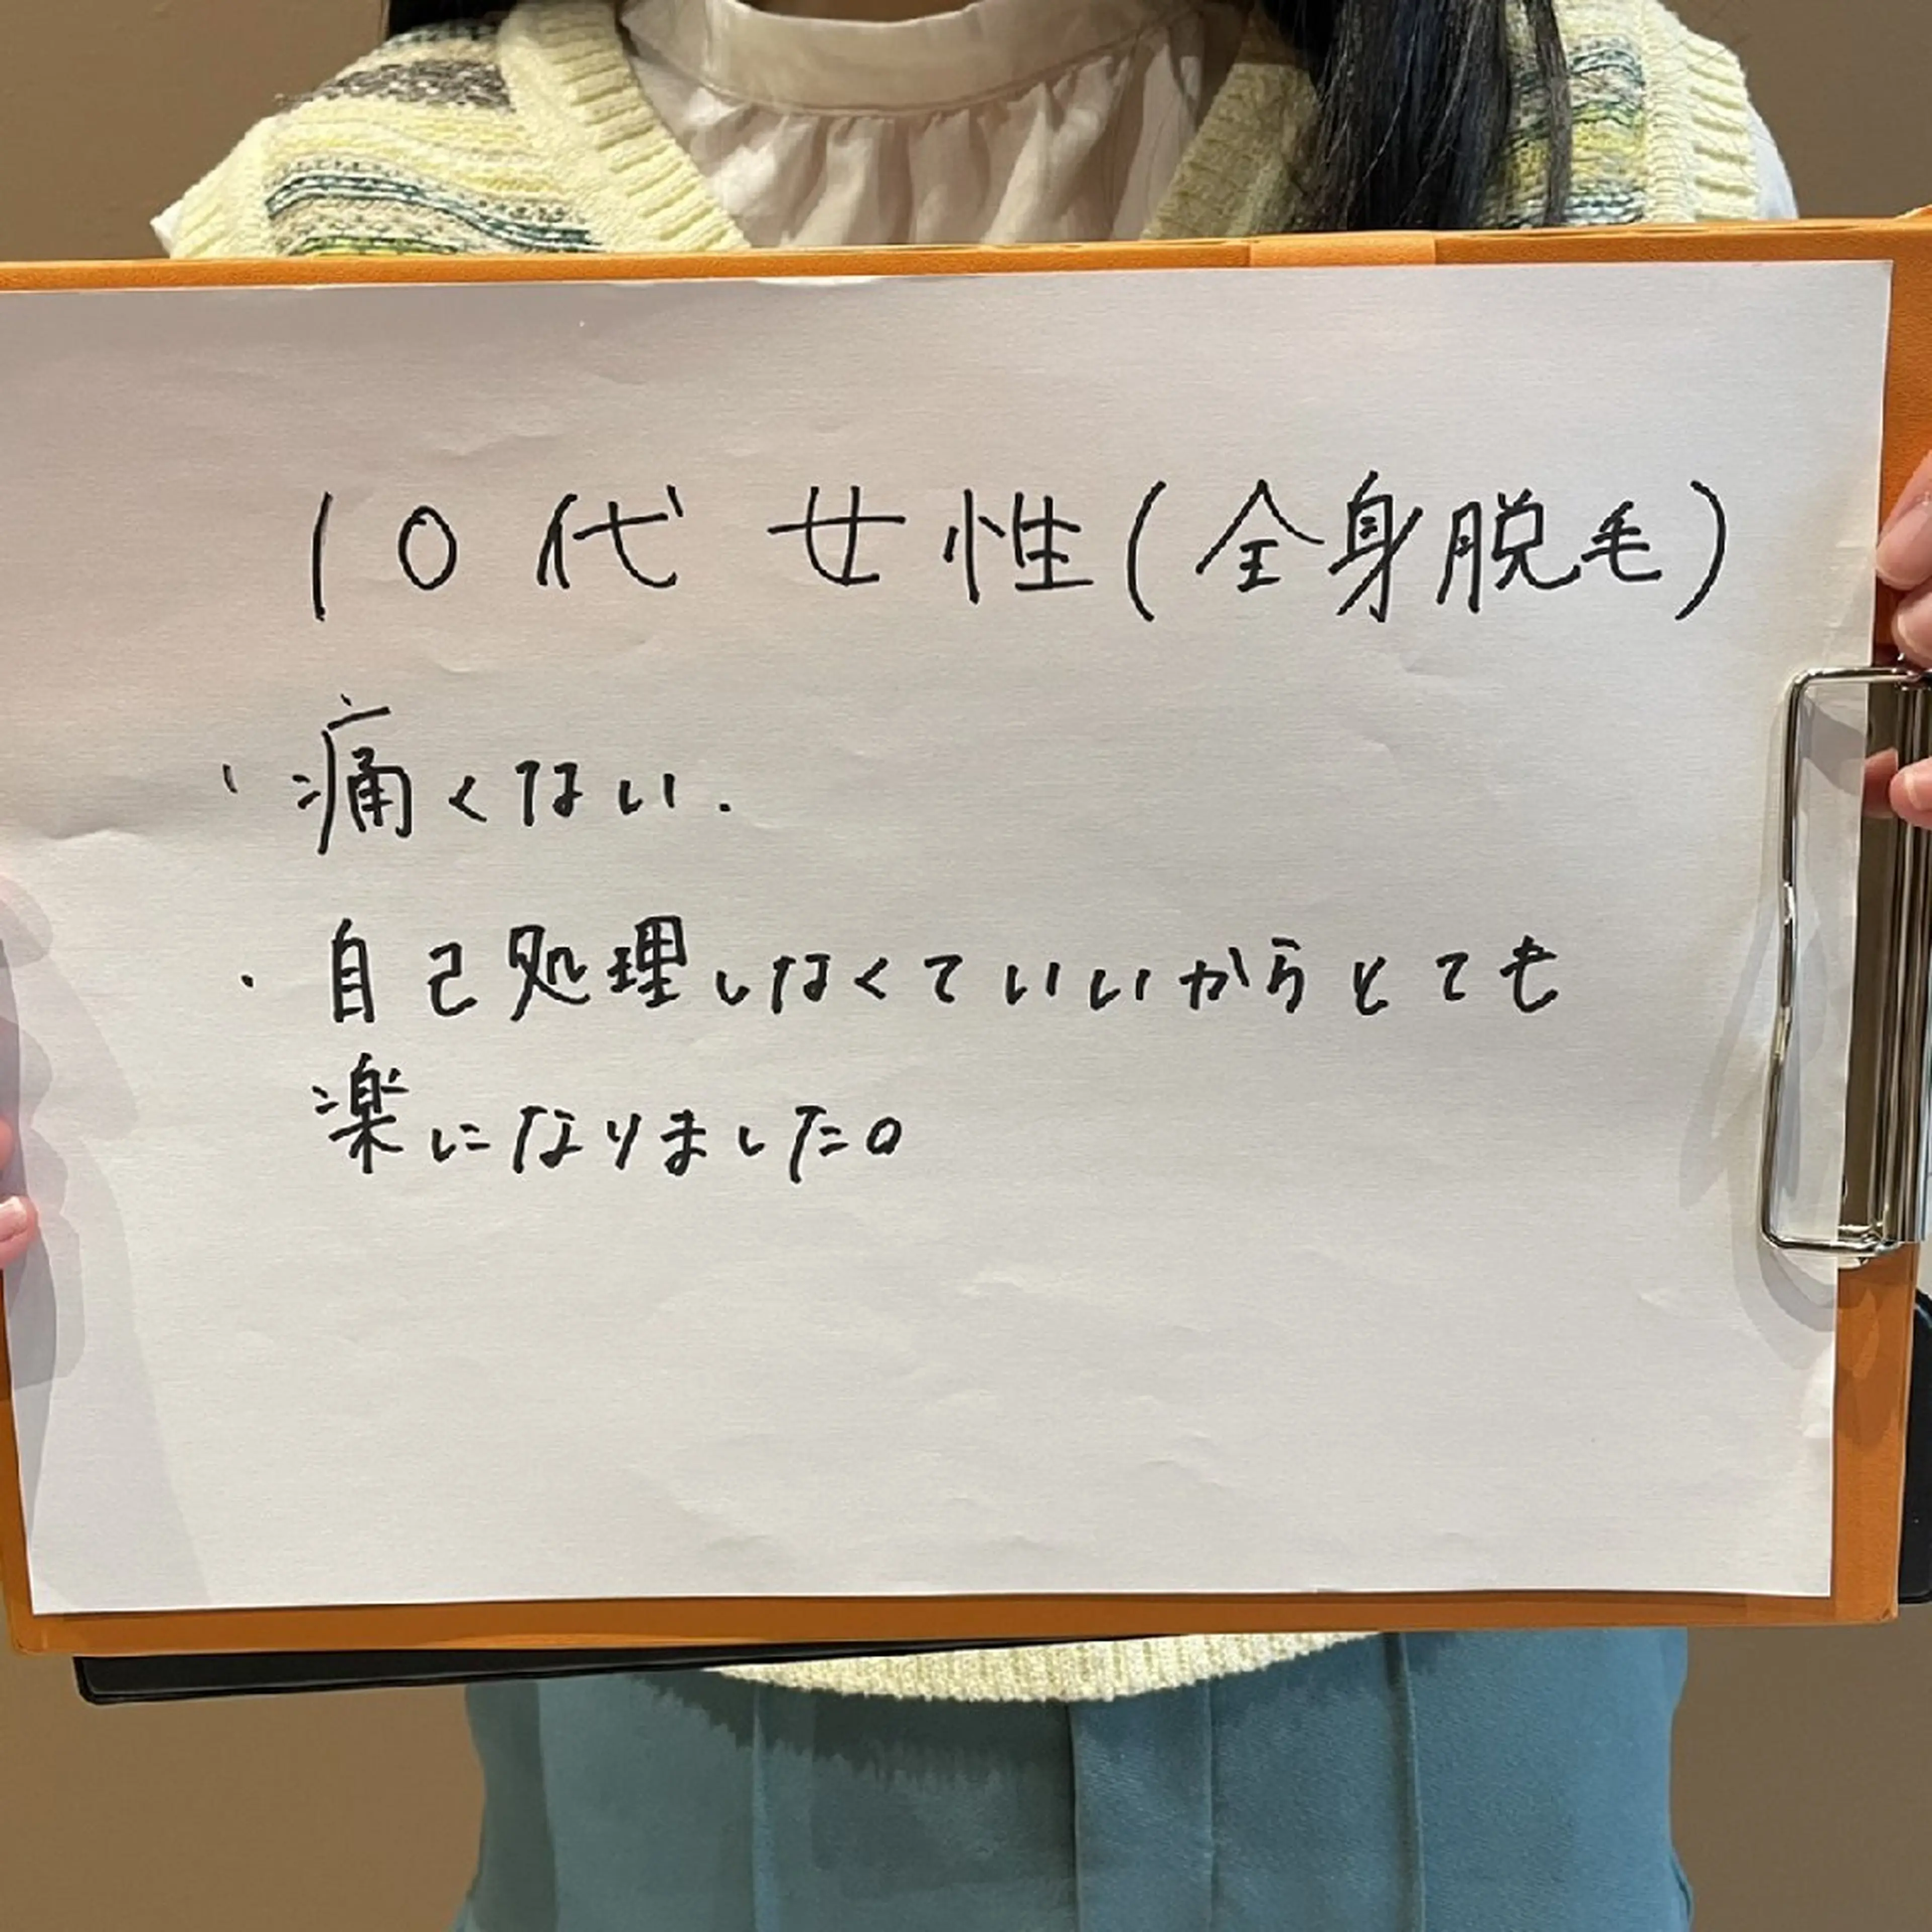 10代 女性(全身脱毛)
・痛くない.
・自己処理しなくていいからとても
楽になりました。